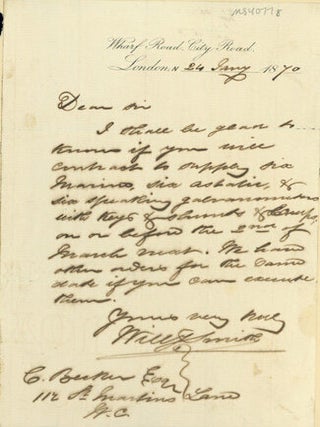 MS40778
Wharf Road, City Road,
London. N 24 Jany 1870
Dear Sir
I shall be glad to
know if you will
contract to supply six
Marine, six astatic, &
six speaking galvanometers
with Keys & shunts &
on or before the 2nd of
March next. We have
other orders for the same
date if you can execute
them.
Yours very truly
Will Smith
C. Becker Esq
112 St Martins Lane
W.C.